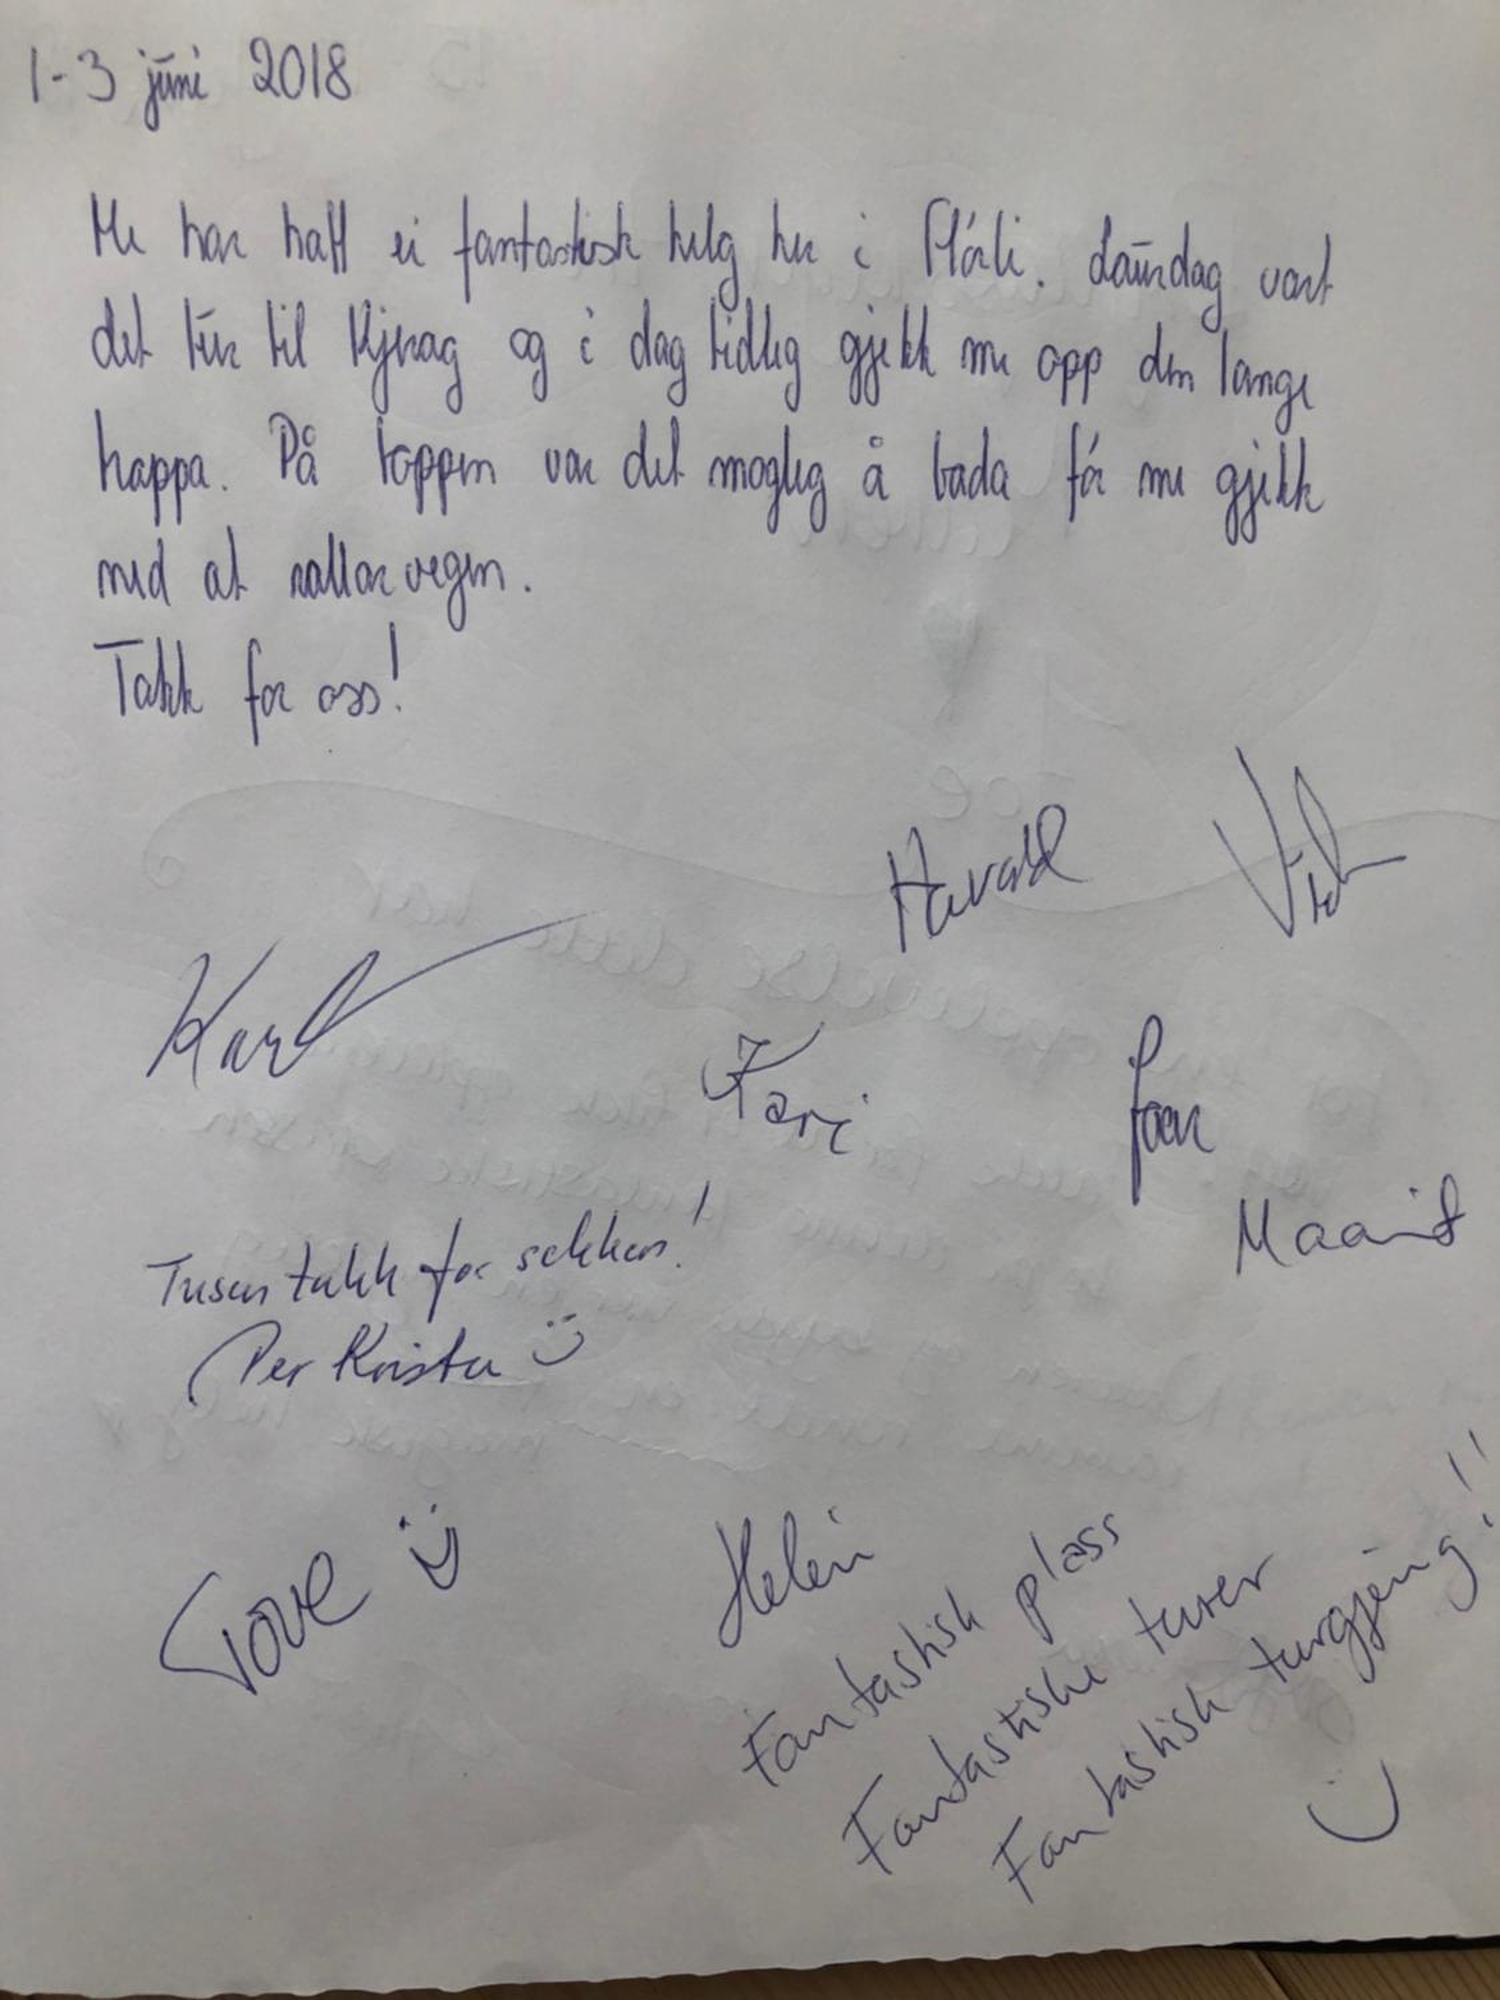 1-3 juni 2018
Me har hatt ei fantastisk helg her i Flørli. Laurdag vart
det tur til Kjerag og i dag tidleg gjekk me opp den lange
trappa. På toppen var det mogleg å bada før me gjekk
ned at rallarvegen.
Takk for oss!
Harald
Karl
Kari
Maarit
Tusen takk for sekken!
Per Krister
Tove
Helén
Fantastisk plass
Fantastiske turer
Fantastisk turgjeng!!!